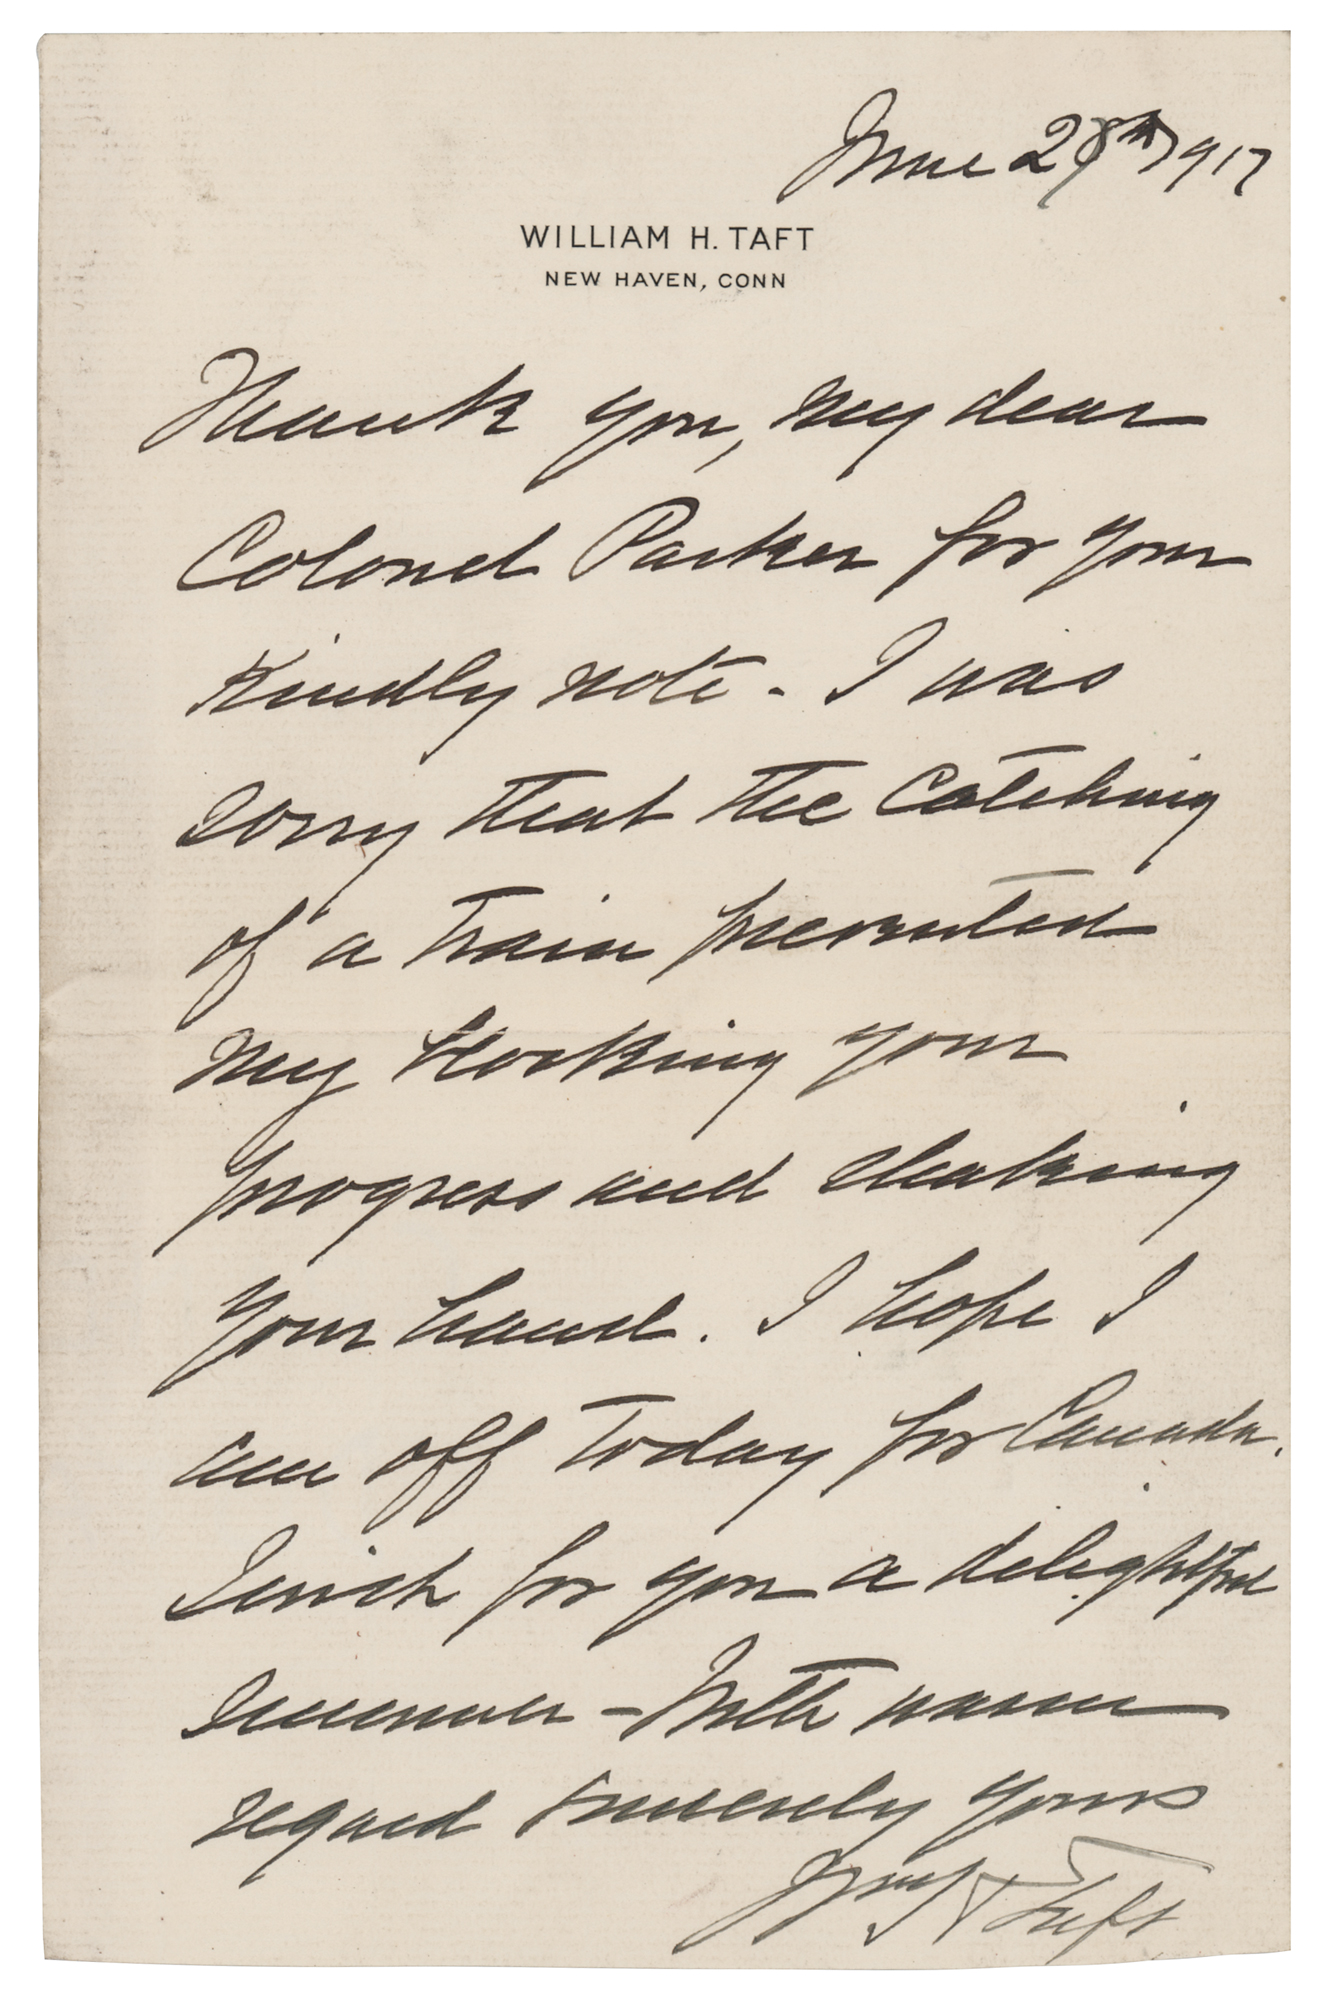 June 28th 1917
WILLIAM H. TAFT
NEW HAVEN, CONN
Thank you, my dear
Colonel Parker for your
kindly note - I was
sorry that the catching
of a train prevented
my blocking your
progress and shaking
your hand. I hope I
am off today for Canada.
I wish for you a delightful
summer - With warm
regard sincerely yours
Wm H Taft